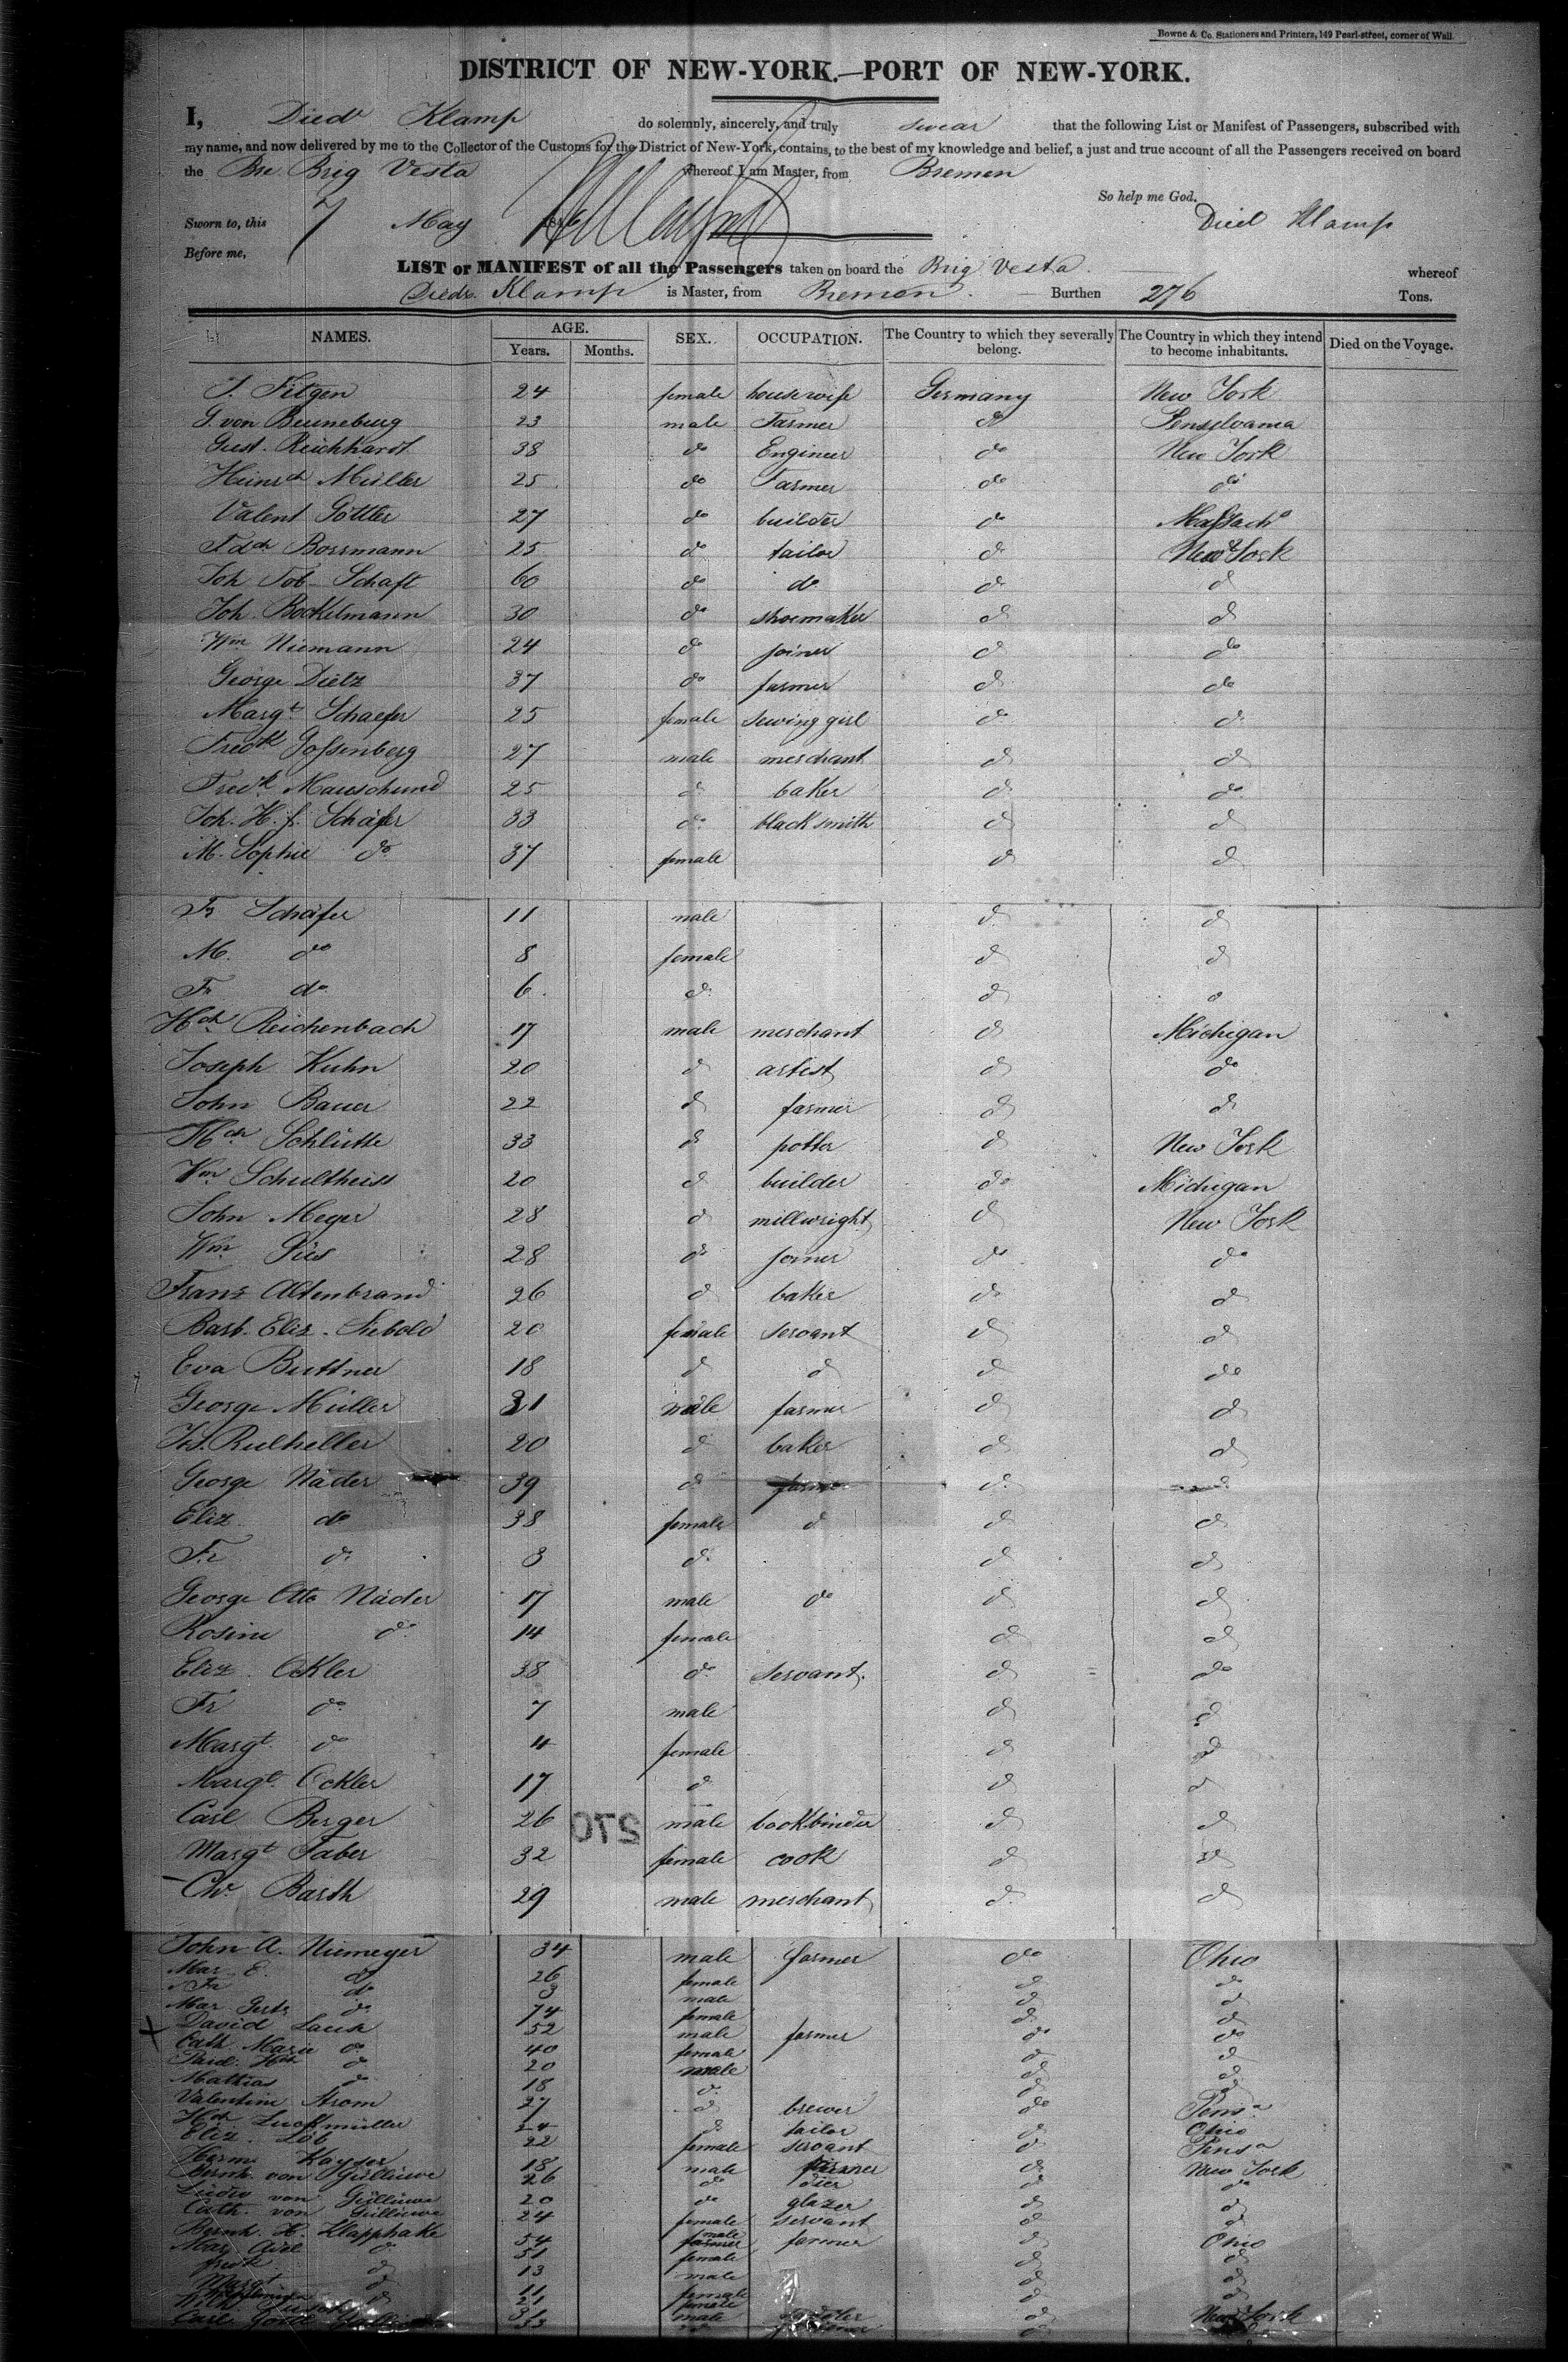 Bowne & Co. Stationers and Printers, 149 Pearl-street, corner of Wall.
DISTRICT OF NEW-YORK.—PORT OF NEW-YORK.
I, Diedr Klamp do solemnly, sincerely, and truly swear that the following List or Manifest of Passengers, subscribed with
my name, and now delivered by me to the Collector of the Customs for the District of New-York, contains, to the best of my knowledge and belief, a just and true account of all the Passengers received on board
the Bre Brig Vesta whereof I am Master, from Bremen
So help me God.
Sworn to, this 7 May Died Klamp
Before me,
LIST or MANIFEST of all the Passengers taken on board the Brig Vesta whereof
Diedr. Klamp is Master, from Bremen. Burthen 276 Tons.
NAMES. AGE. SEX. OCCUPATION. The Country to which they severally belong. The Country in which they intend to become inhabitants. Died on the Voyage.
Years. Months.
J. Fitgen 24 female housewife Germany New York
G. von Beuneburg 23 male Farmer do Pensylvania
Gust. Reichhardt 38 do Engineer do New York
Heinrch Müller 25 do Farmer do do
Valent Göttler 27 do builder do Massach
Fdch Bossmann 25 do tailor do New York
Joh Tob Schaft 60 do do do do
Joh. Bockelmann 30 do shoemaker do do
Wm Niemann 24 do joiner do do
George Dietz 37 do farmer do do
Margt Schaefer 25 female sewing girl do do
Fredk Gossenberg 27 male merchant do do
Fredk Mauschund 25 do baker do do
Joh. H. f. Schäfer 33 do blacksmith do do
M. Sophie do 37 female do do
Fr Schäfer 11 male do do
M. do 8 female do do
Fr do 6 do do do
Hch Reichenbach 17 male merchant do Michigan
Joseph Kuhn 20 do artist do do
John Bauer 22 do farmer do do
Hch Schlütte 33 do potter do New York
Wm Schultheiss 20 do builder do Michigan
John Meyer 28 do millwright do New York
Wm Pies 28 do joiner do do
Franz Altenbrand 26 do baker do do
Barb. Elis. Siebold 20 female servant do do
Eva Buttner 18 do do do do
George Müller 31 male farmer do do
Rulheller 20 do baker do do
George Näder 39 do farmer do do
Eliz do 38 female do do do
Fr do 3 do do do
George Otto Näder 17 male do do do
Rosine do 14 female do do
Eliz. Ockler 38 do servant do do
Fr do 7 male do do
Margt do 4 female do do
Margt Ockler 17 do do do
Carl Berger 26 male bookbinder do do
270
Margt Faber 32 female cook do do
Chr Barth 29 male merchant do do
John A. Niemeyer 34 male farmer do Ohio
Mar. E. do 26 female do do
Fr do 3 male do do
Mar Gertr do 74 female do do
David Lause 52 male farmer do do
Cath Marie do 40 female do do
Hch do 20 male do do
Mathias do 18 do do do
Valentin Strom 27 do brewer do Pensa
Hch Luckmüller 24 do tailor do Ohio
Eliz. Löb 22 female servant do Pensa
Herm Kayser 18 male farmer do New York
Bernh. von Güllüwe 26 do dier do do
Ludw von Güllüwe 20 do glazer do do
Cath. von Güllüwe 24 female servant do do
Bernh. H. Klapphake 54 male farmer do Ohio
Mar. do 51 female do do
fredk do 13 male do do
Margt do 11 female do do
21 female
31 male do New York
Carl 33 do do